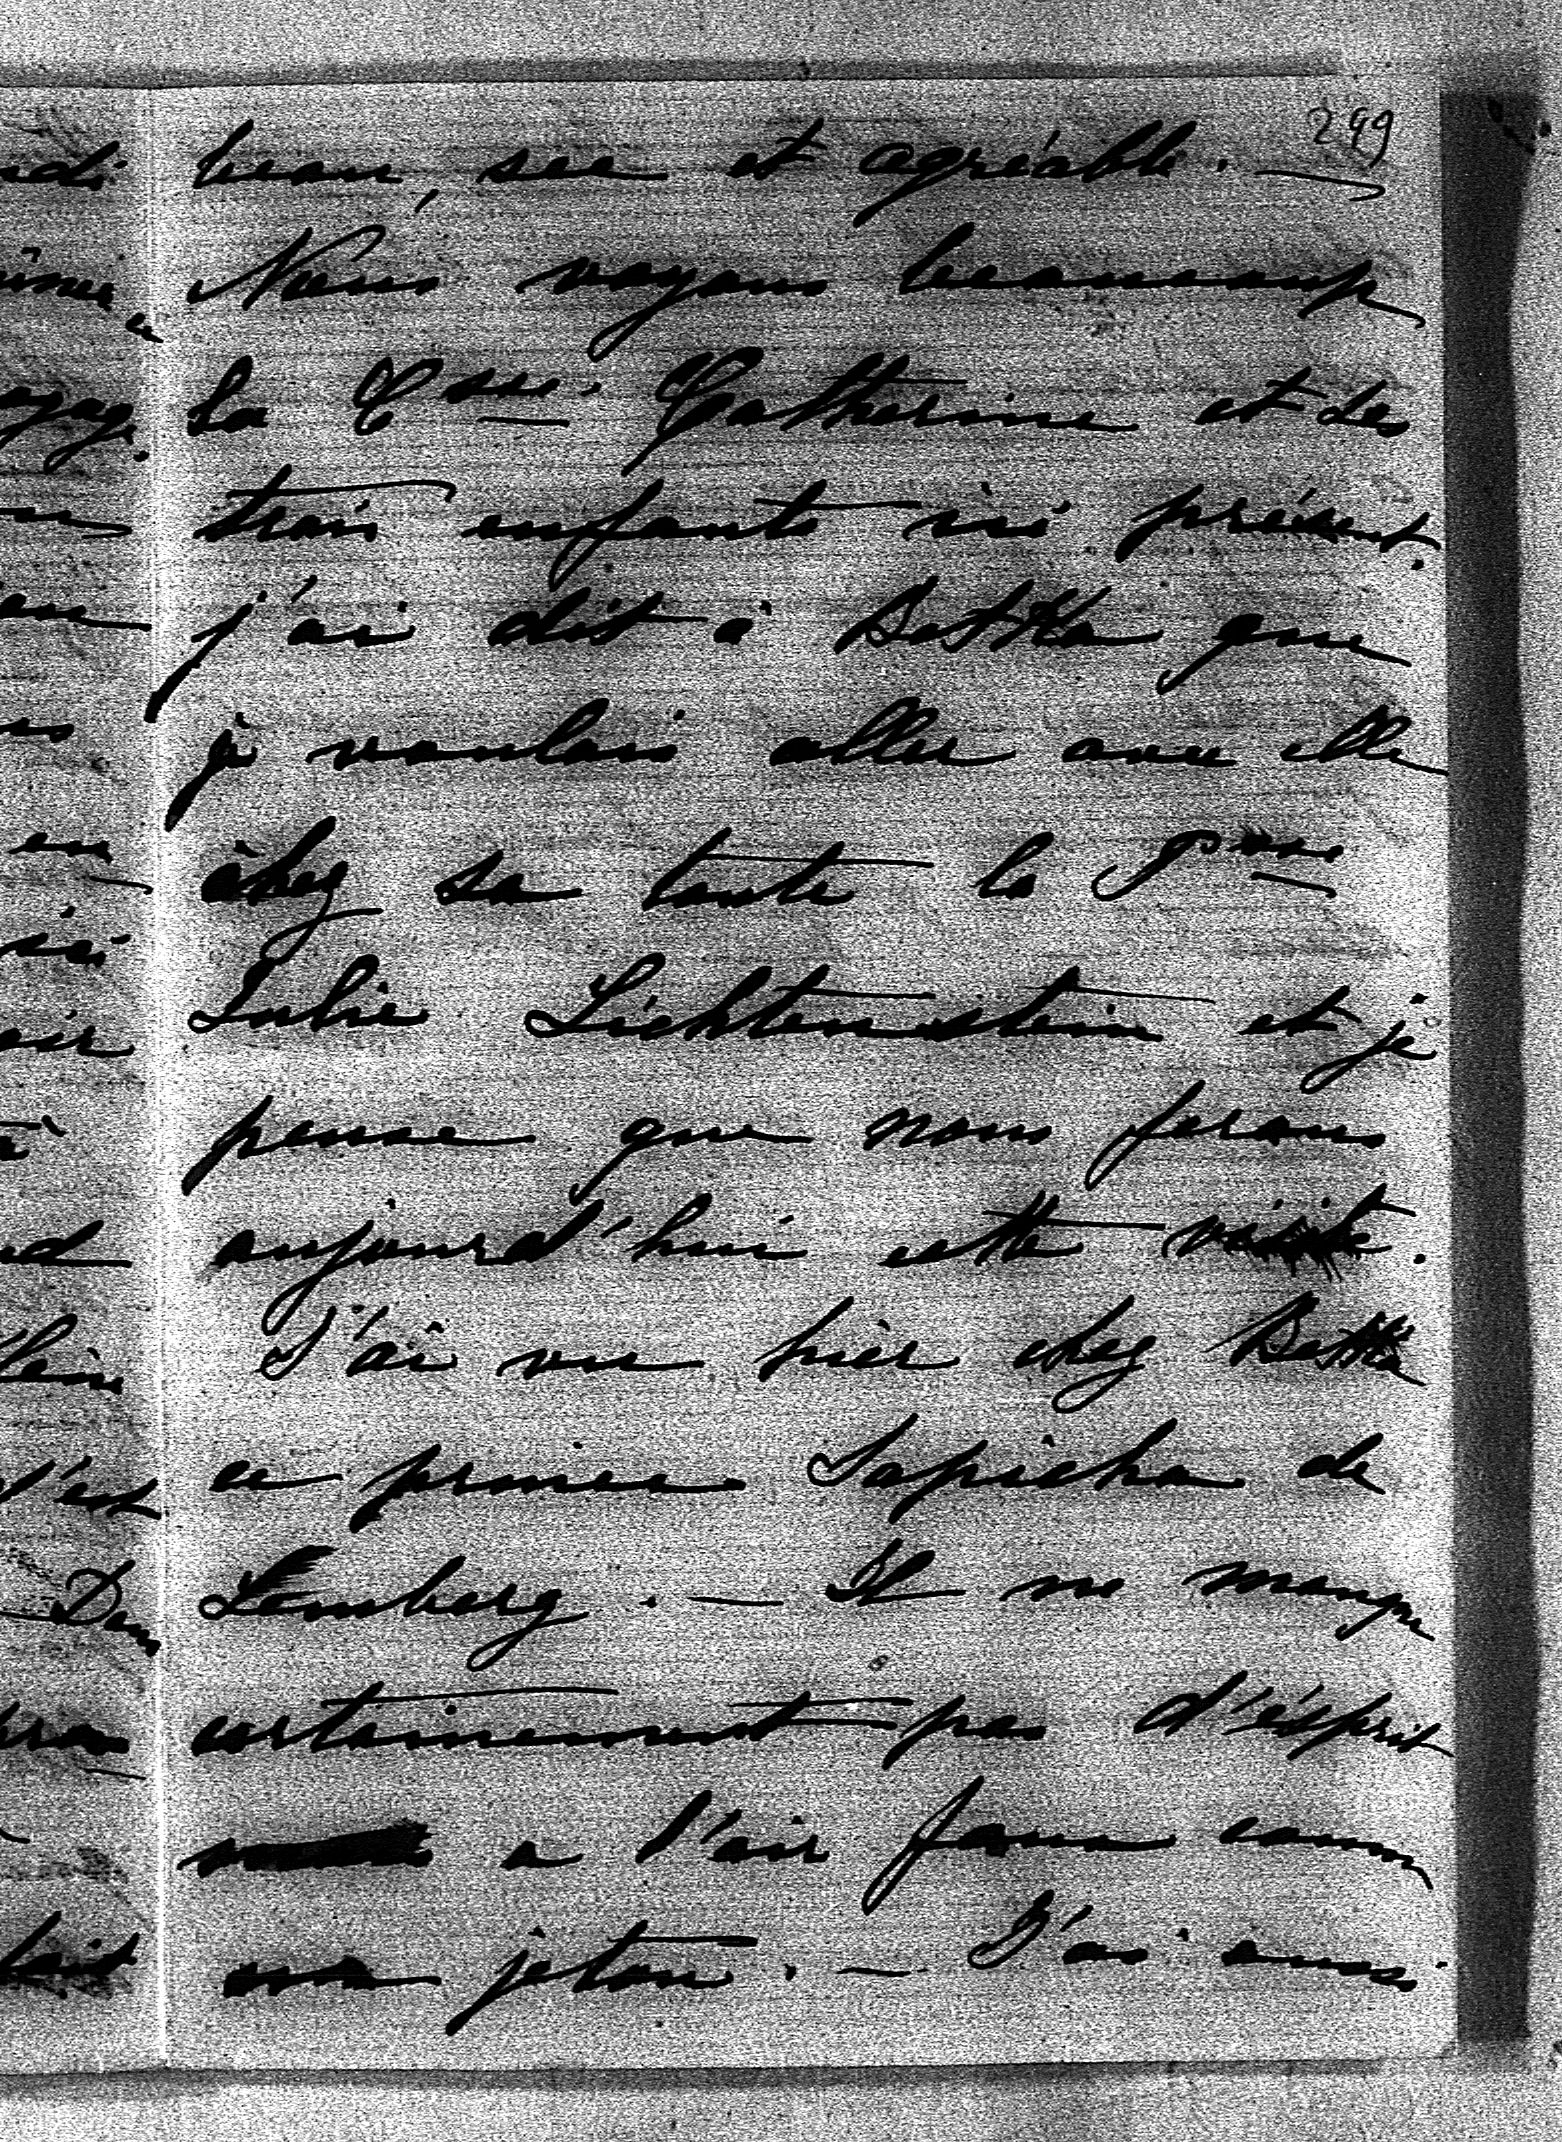 299
beau, sec et agréable. —
Nous voyons beaucoup
la Csse. Catherine et les
trois enfants ici présent.
j'ai dit à Bettka que
je voulais aller avec elle
chez sa tante la Psse
Julie Lichtenstein et je
pense que nous ferons
aujourd'hui cette visite.
J'ai vu hier chez Bettka
ce prince Sapieha de
Lemberg. — Il ne manque
certainement pas d'ésprit
a l'air faux comm
un jeton. — J'ai aussi